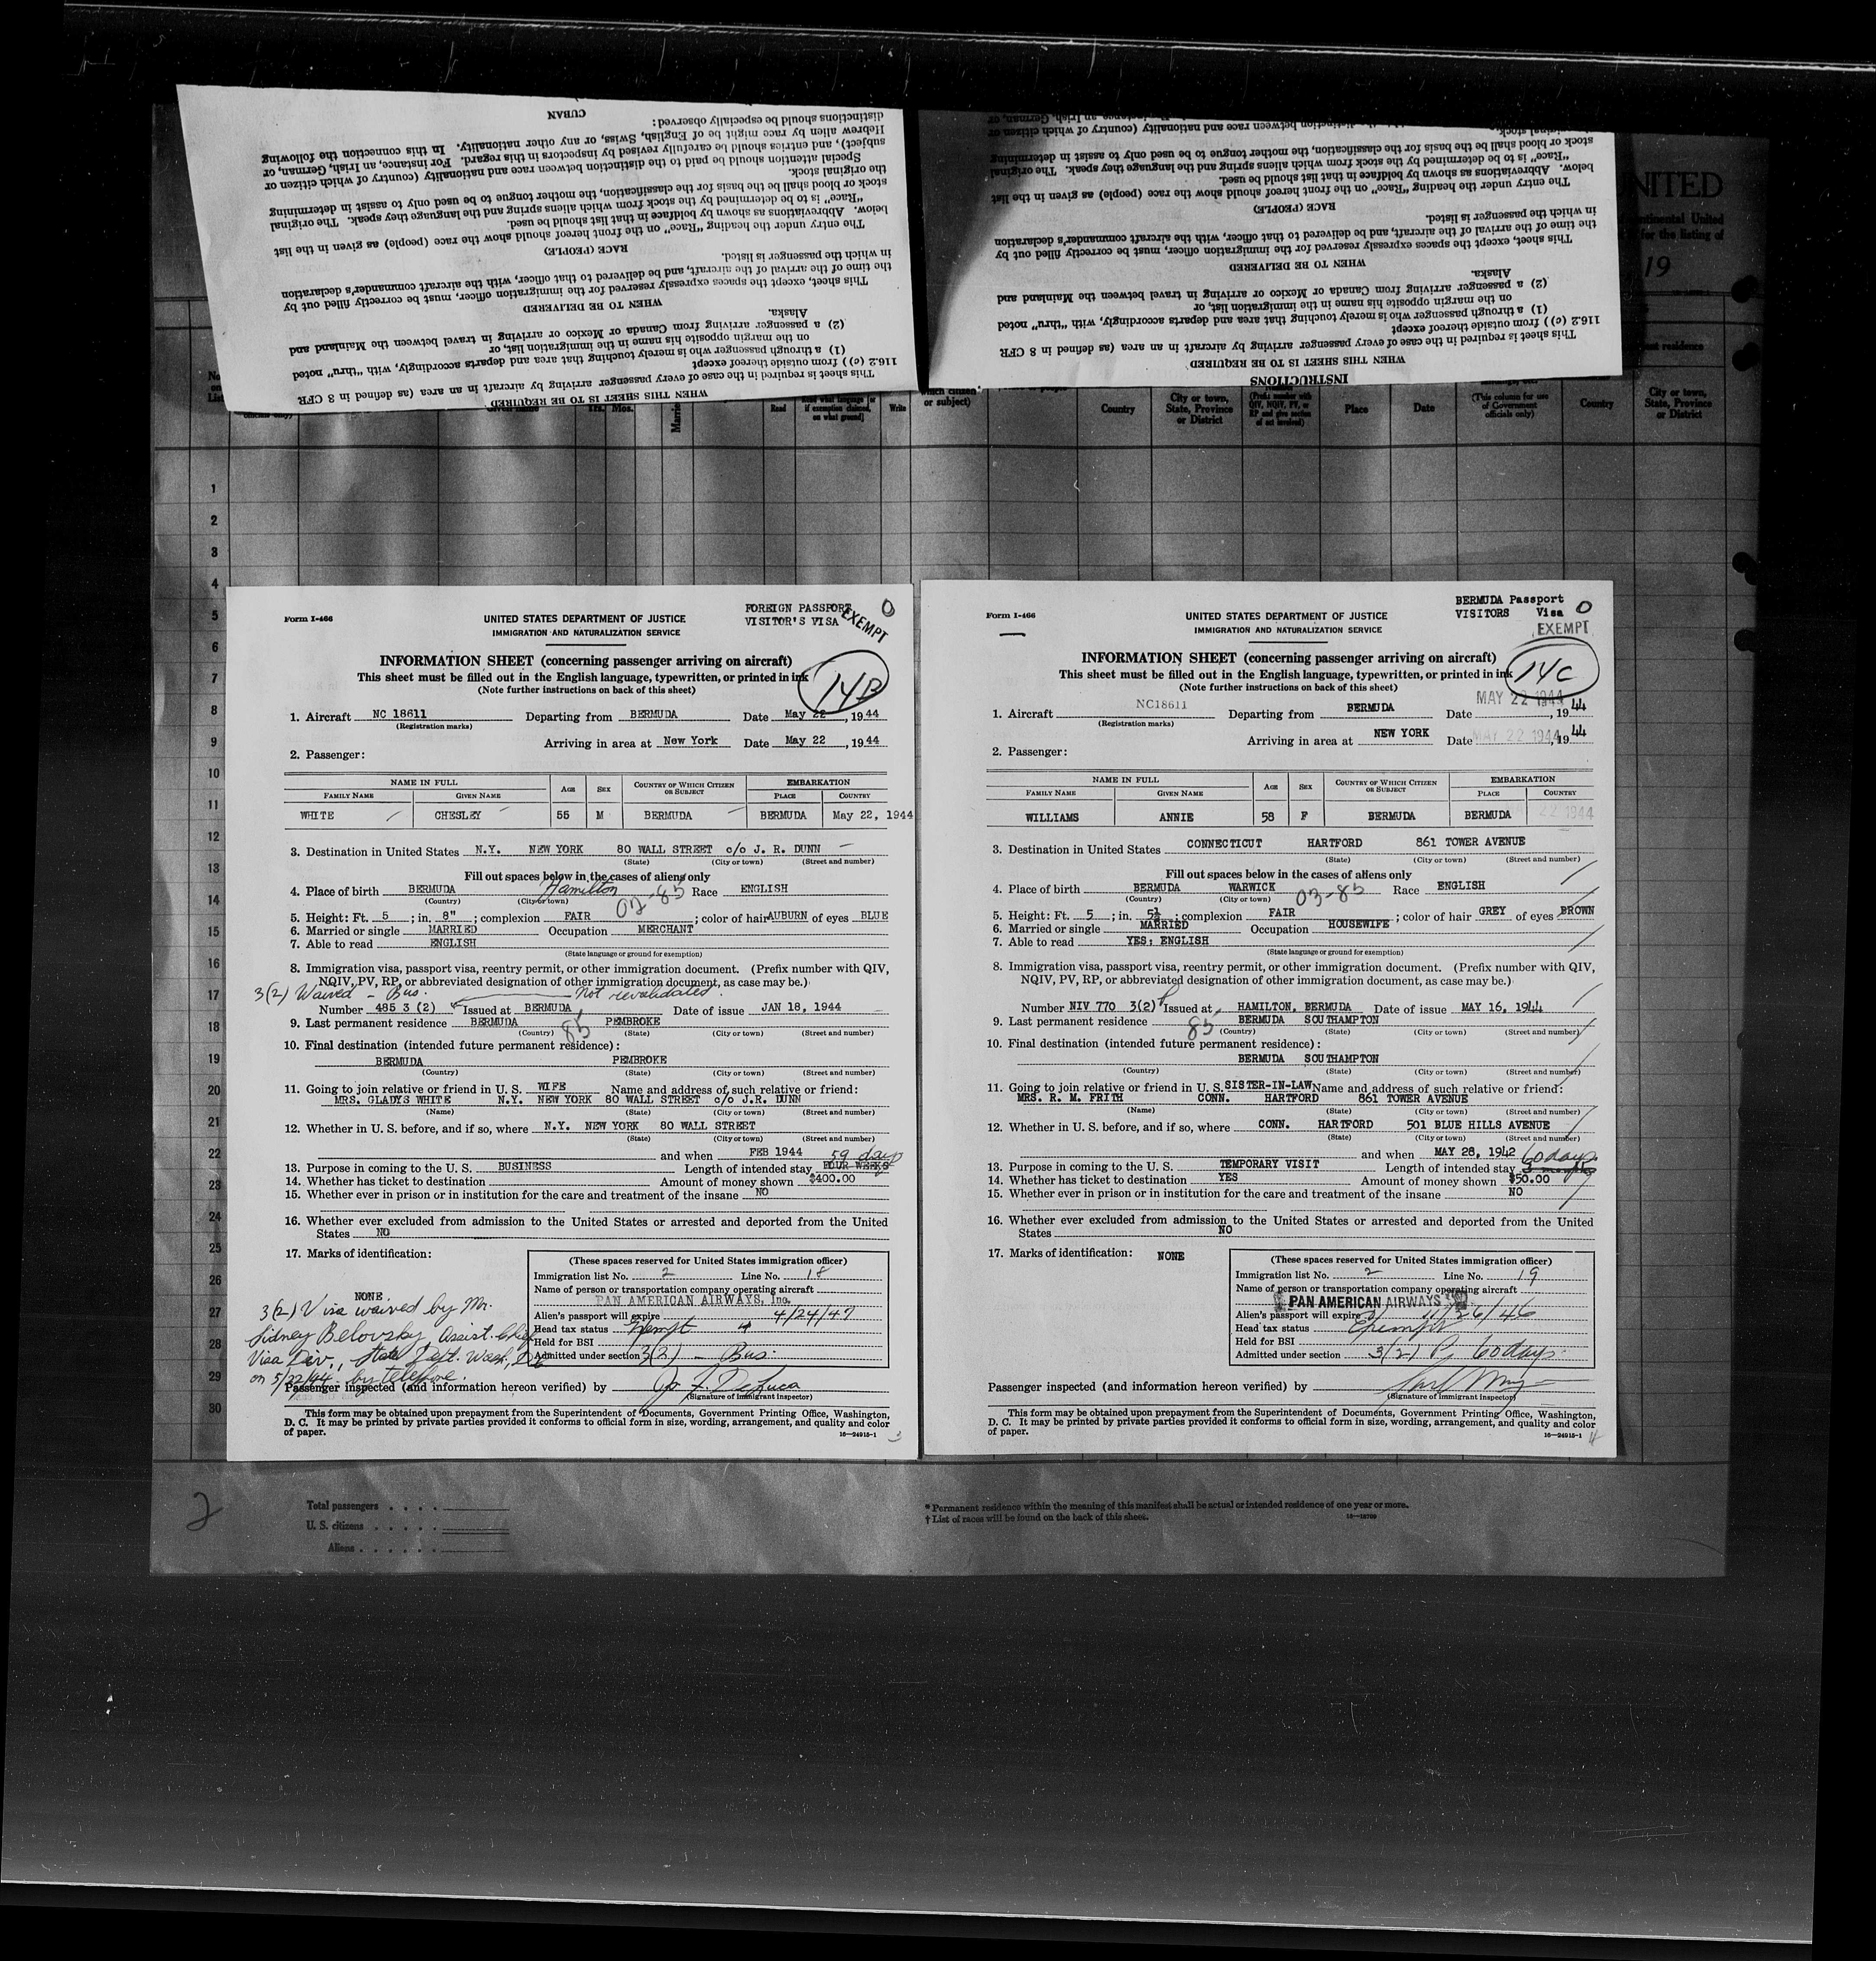 CUBAN
distinctions should be especially observed:
Hebrew alien by race might be of English, Swiss, or any other nationality. In this connection the following
subject), and entries should be carefully revised by inspectors in this regard. For instance, an Irish, German, or
Special attention should be paid to the distinction between race and nationality (country of which citizen or
the original stock.
stock or blood shall be the basis for the classification, the mother tongue to be used only to assist in determining
"Race" is to be determined by the stock from which aliens spring and the language they speak. The original
below. Abbreviations as shown by boldface in that list should be used.
The entry under the heading "Race" on the front hereof should show the race (people) as given in the list
RACE (PEOPLE)
in which the passenger is listed.
the time of the arrival of the aircraft, and be delivered to that officer, with the aircraft commander's declaration
This sheet, except the spaces expressly reserved for the immigration officer, must be correctly filled out by
WHEN TO BE DELIVERED
Alaska.
(2) a passenger arriving from Canada or Mexico or arriving in travel between the Mainland and
on the margin opposite his name in the immigration list, or
(1) a through passenger who is merely touching that area and departs accordingly, with "thru" noted
116.2 (c)) from outside thereof except
This sheet is required in the case of every passenger arriving by aircraft in an area (as defined in 8 CFR
WHEN THIS SHEET IS TO BE REQUIRED
distinction between race and nationality (country of which citizen or
stock or blood shall be the basis for the classification, the mother tongue to be used only to assist in determining
"Race" is to be determined by the stock from which aliens spring and the language they speak. The original
below. Abbreviations as shown by boldface in that list should be used.
The entry under the heading "Race" on the front hereof should show the race (people) as given in the list
RACE (PEOPLE)
in which the passenger is listed.
the time of the arrival of the aircraft, and be delivered to that officer, with the aircraft commander's declaration
This sheet, except the spaces expressly reserved for the immigration officer, must be correctly filled out by
WHEN TO BE DELIVERED
Alaska.
(2) a passenger arriving from Canada or Mexico or arriving in travel between the Mainland and
on the margin opposite his name in the immigration list, or
(1) a through passenger who is merely touching that area and departs accordingly, with "thru" noted
116.2 (c)) from outside thereof except
This sheet is required in the case of every passenger arriving by aircraft in an area (as defined in 8 CFR
WHEN THIS SHEET IS TO BE REQUIRED
INSTRUCTIONS
NITED
continental United
for the listing of
19
residence
Yrs. Mos.
Read
if exemption claimed, on what ground)
Write
or subject)
Country
City or town, State, Province or District
Place
Date
(This column for use of Government officials only)
Country
City or town, State, Province or District
1
2
3
4
5
6
7
8
9
10
11
12
13
14
15
16
17
18
19
20
21
22
23
24
25
26
27
28
29
30
Form I-466
FOREIGN PASSPORT
VISITOR'S VISA
EXEMPT
0
UNITED STATES DEPARTMENT OF JUSTICE
IMMIGRATION AND NATURALIZATION SERVICE
INFORMATION SHEET (concerning passenger arriving on aircraft)
This sheet must be filled out in the English language, typewritten, or printed in ink
(Note further instructions on back of this sheet)
14B
1. Aircraft NC 18611 Departing from BERMUDA Date May 22, 1944
(Registration marks)
Arriving in area at New York Date May 22, 1944
2. Passenger:
NAME IN FULL AGE SEX COUNTRY OF WHICH CITIZEN OR SUBJECT EMBARKATION
FAMILY NAME GIVEN NAME PLACE COUNTRY
WHITE CHESLEY 55 M BERMUDA BERMUDA May 22, 1944
3. Destination in United States N.Y. NEW YORK 80 WALL STREET c/o J. R. DUNN
(State) (City or town) (Street and number)
Fill out spaces below in the cases of aliens only
4. Place of birth BERMUDA Hamilton 02-85 Race ENGLISH
(Country) (City or town)
5. Height: Ft. 5; in. 8"; complexion FAIR; color of hair AUBURN of eyes BLUE
6. Married or single MARRIED Occupation MERCHANT
7. Able to read ENGLISH
(State language or ground for exemption)
8. Immigration visa, passport visa, reentry permit, or other immigration document. (Prefix number with QIV,
NQIV, PV, RP, or abbreviated designation of other immigration document, as case may be.)
3(2) Waived - Bus. Not revalidated.
Number 485 3 (2) Issued at BERMUDA Date of issue JAN 18, 1944
9. Last permanent residence BERMUDA 85 PEMBROKE
(Country) (State) (City or town) (Street and number)
10. Final destination (intended future permanent residence):
BERMUDA PEMBROKE
(Country) (State) (City or town) (Street and number)
11. Going to join relative or friend in U. S. WIFE Name and address of such relative or friend:
MRS. GLADYS WHITE N.Y. NEW YORK 80 WALL STREET c/o J.R. DUNN
(Name) (State) (City or town) (Street and number)
12. Whether in U. S. before, and if so, where N.Y. NEW YORK 80 WALL STREET
(State) (City or town) (Street and number)
and when FEB 1944 59 days
13. Purpose in coming to the U. S. BUSINESS Length of intended stay FOUR WEEKS
14. Whether has ticket to destination Amount of money shown $400.00
15. Whether ever in prison or in institution for the care and treatment of the insane NO
16. Whether ever excluded from admission to the United States or arrested and deported from the United
States NO
17. Marks of identification:
NONE
3(2) Visa waived by Mr.
Sidney Belovsky, Assist. Chief
Visa Div., State Dept. Wash, DC
on 5/22/44 by telefone.
(These spaces reserved for United States immigration officer)
Immigration list No. 2 Line No. 18
Name of person or transportation company operating aircraft
PAN AMERICAN AIRWAYS, Inc.
Alien's passport will expire 4/24/47
Head tax status Exempt
Held for BSI
Admitted under section 3(2) - Bus.
Passenger inspected (and information hereon verified) by Jo. F. DeLuca
(Signature of immigrant inspector)
This form may be obtained upon prepayment from the Superintendent of Documents, Government Printing Office, Washington,
D. C. It may be printed by private parties provided it conforms to official form in size, wording, arrangement, and quality and color
of paper.
16—24915-1
3
Form I-466
BERMUDA Passport
VISITORS Visa
EXEMPT
0
UNITED STATES DEPARTMENT OF JUSTICE
IMMIGRATION AND NATURALIZATION SERVICE
INFORMATION SHEET (concerning passenger arriving on aircraft)
This sheet must be filled out in the English language, typewritten, or printed in ink
(Note further instructions on back of this sheet)
14C
1. Aircraft NC18611 Departing from BERMUDA Date MAY 22 1944, 1944
(Registration marks)
Arriving in area at NEW YORK Date MAY 22 1944, 1944
2. Passenger:
NAME IN FULL AGE SEX COUNTRY OF WHICH CITIZEN OR SUBJECT EMBARKATION
FAMILY NAME GIVEN NAME PLACE COUNTRY
WILLIAMS ANNIE 58 F BERMUDA BERMUDA 22 1944
3. Destination in United States CONNECTICUT HARTFORD 861 TOWER AVENUE
(State) (City or town) (Street and number)
Fill out spaces below in the cases of aliens only
4. Place of birth BERMUDA WARWICK 03-85 Race ENGLISH
(Country) (City or town)
5. Height: Ft. 5; in. 5½; complexion FAIR; color of hair GREY of eyes BROWN
6. Married or single MARRIED Occupation HOUSEWIFE
7. Able to read YES; ENGLISH
(State language or ground for exemption)
8. Immigration visa, passport visa, reentry permit, or other immigration document. (Prefix number with QIV,
NQIV, PV, RP, or abbreviated designation of other immigration document, as case may be.)
Number NIV 770 3(2) P Issued at HAMILTON, BERMUDA Date of issue MAY 16, 1944
9. Last permanent residence 85 BERMUDA SOUTHAMPTON
(Country) (State) (City or town) (Street and number)
10. Final destination (intended future permanent residence):
BERMUDA SOUTHAMPTON
(Country) (State) (City or town) (Street and number)
11. Going to join relative or friend in U. S. SISTER-IN-LAW Name and address of such relative or friend:
MRS. R. M. FRITH CONN. HARTFORD 861 TOWER AVENUE
(Name) (State) (City or town) (Street and number)
12. Whether in U. S. before, and if so, where CONN. HARTFORD 501 BLUE HILLS AVENUE
(State) (City or town) (Street and number)
and when MAY 28, 1942 60 days
13. Purpose in coming to the U. S. TEMPORARY VISIT Length of intended stay 3 months
14. Whether has ticket to destination YES Amount of money shown $50.00
15. Whether ever in prison or in institution for the care and treatment of the insane NO
16. Whether ever excluded from admission to the United States or arrested and deported from the United
States NO
17. Marks of identification: NONE
(These spaces reserved for United States immigration officer)
Immigration list No. 2 Line No. 19
Name of person or transportation company operating aircraft
PAN AMERICAN AIRWAYS
Alien's passport will expire 26/46
Head tax status Exempt
Held for BSI
Admitted under section 3(2) P, 60 days.
Passenger inspected (and information hereon verified) by
(Signature of immigrant inspector)
This form may be obtained upon prepayment from the Superintendent of Documents, Government Printing Office, Washington,
D. C. It may be printed by private parties provided it conforms to official form in size, wording, arrangement, and quality and color
of paper.
16—24915-1
4
2
Total passengers . . . .
U. S. citizens . . . . .
Aliens . . . . . .
* Permanent residence within the meaning of this manifest shall be actual or intended residence of one year or more.
† List of races will be found on the back of this sheet.